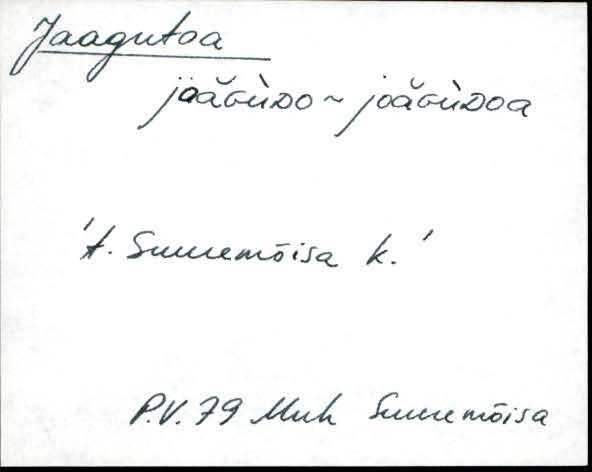 Jaagutoa
jöăGùDO ~ joăGùDOa
't. Suuremõisa k.'
P.V. 79 Muh Suuremõisa